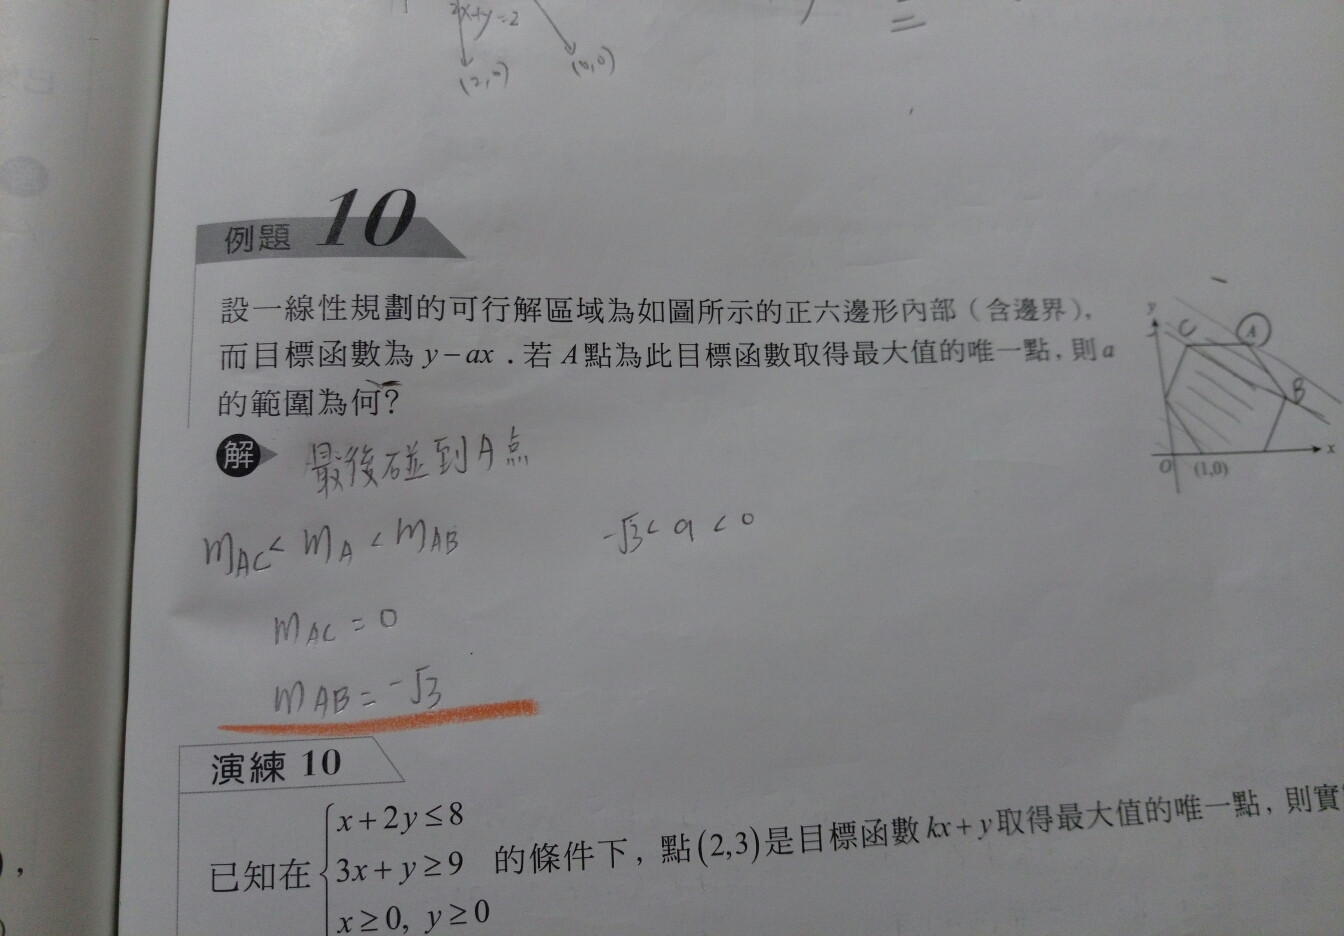 2x+y=2
(2,0)
(0,0)
例題 10
設一線性規劃的可行解區域為如圖所示的正六邊形內部（含邊界），
而目標函數為 y－ax．若 A 點為此目標函數取得最大值的唯一點，則 a
的範圍為何？
y
C
A
B
O
(1,0)
x
解
最後碰到A点
mAC< mA < mAB
-√3 < a < 0
mAC = 0
mAB = -√3
演練 10
已知在
x+2y≤8
3x+y≥9
x≥0, y≥0
的條件下，點(2,3)是目標函數 kx+y 取得最大值的唯一點，則實